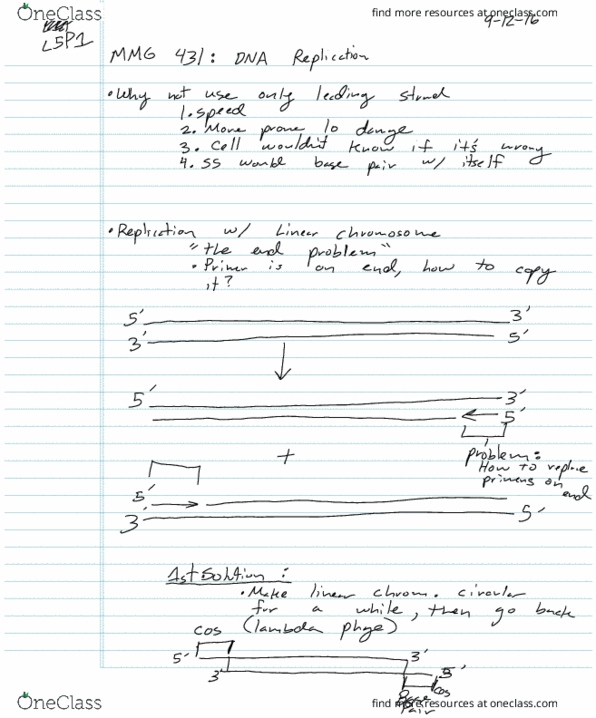 OneClass
find more resources at oneclass.com
9-12-16
L5P1
MMG 431: DNA Replication
• Why not use only leading strand
1. speed
2. More prone to damge
3. Cell wouldn't know if it's wrong
4. SS would base pair w/ itself
• Replication w/ Linear chromosome
"the end problem"
• Primer is on end, how to copy
it?
5' 3'
3' 5'
5' 3'
5'
+
problem:
How to replace
primers on
end
5'
3' 5'
1st Solution:
• Make linear chrom. circular
for a while, then go back
(lambda phage)
cos
5' 3'
3' 5'
cos
Base
Pair
OneClass
find more resources at oneclass.com